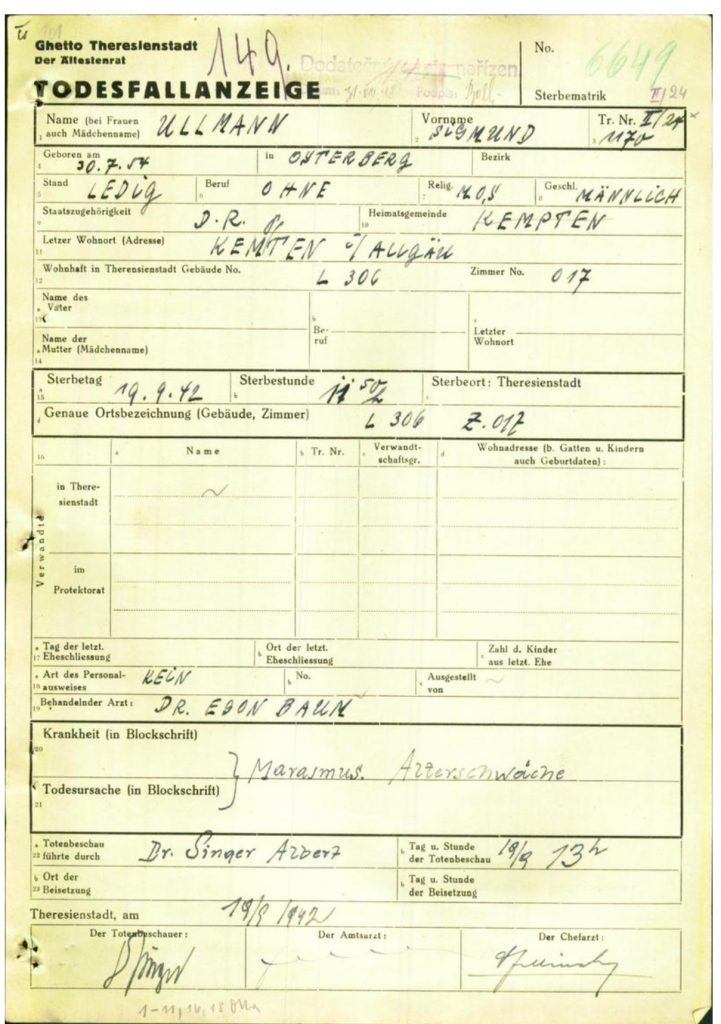 Ghetto Theresienstadt
Der Ältestenrat
149.
Dodatečný nařízen
No. 6649
TODESFALLANZEIGE
Sterbematrik II/24
Name (bei Frauen auch Mädchenname) ULLMANN
Vorname SIGMUND
Tr. Nr. II/24 1170
Geboren am 30.7.54 in OSTERBERG Bezirk
Stand LEDIG Beruf OHNE Relig. MOS Geschl. MÄNNLICH
Staatszugehörigkeit D.R. Heimatsgemeinde KEMPTEN
Letzer Wohnort (Adresse) KEMTEN i/ALLGÄU
Wohnhaft in Therensienstadt Gebäude No. L 306 Zimmer No. 017
Name des Vater
Name der Mutter (Mädchenname)
Beruf
Letzter Wohnort
Sterbetag 19.9.42 Sterbestunde 11 50 Sterbeort: Theresienstadt
Genaue Ortsbezeichnung (Gebäude, Zimmer) L 306 Z.017
16 Name Tr. Nr. Verwandtschaftsgr. Wohnadresse (b. Gatten u. Kindern auch Geburtdaten) :
Verwandte
in Theresienstadt
im Protektorat
Tag der letzt. Eheschliessung
Ort der letzt. Eheschliessung
Zahl d. Kinder aus letzt. Ehe
Art des Personalausweises KEIN No. Ausgestellt von
Behandelnder Arzt: DR. EGON BAUM
Krankheit (in Blockschrift)
Marasmus. Altersschwäche
Todesursache (in Blockschrift)
Totenbeschau führte durch Dr. Singer Albert Tag u. Stunde der Totenbeschau 19/9 13h
Ort der Beisetzung
Tag u. Stunde der Beisetzung
Theresienstadt, am 19/9 1942
Der Totenbeschauer: Der Amtsarzt: Der Chefarzt: